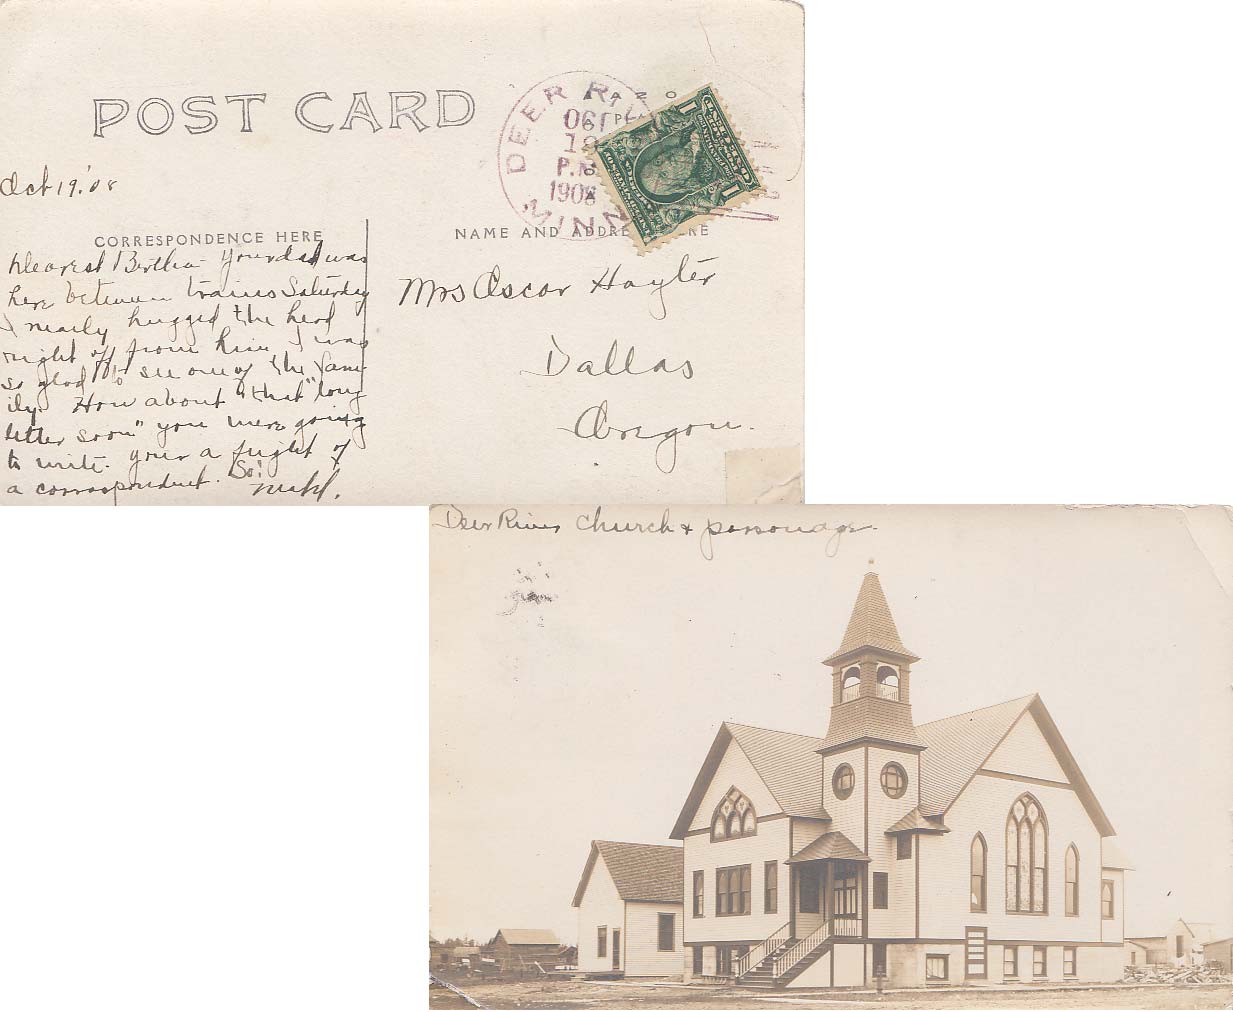 POST CARD
DEER RIV
OCT
19
P.M.
1908
MINN
Oct 19.'08
CORRESPONDENCE HERE
NAME AND ADDRE RE
Dearest Bertha- Your dad was
here between trains Saturday
I nearly hugged the head
right off from him, I was
so glad to see one of the fam
ily. How about "that "long
letter soon" you were going
to write. your a fright of
a correspondent. So!
Mrs Oscar Hayter
Dallas
Oregon.
Deer River Church & parsonage.